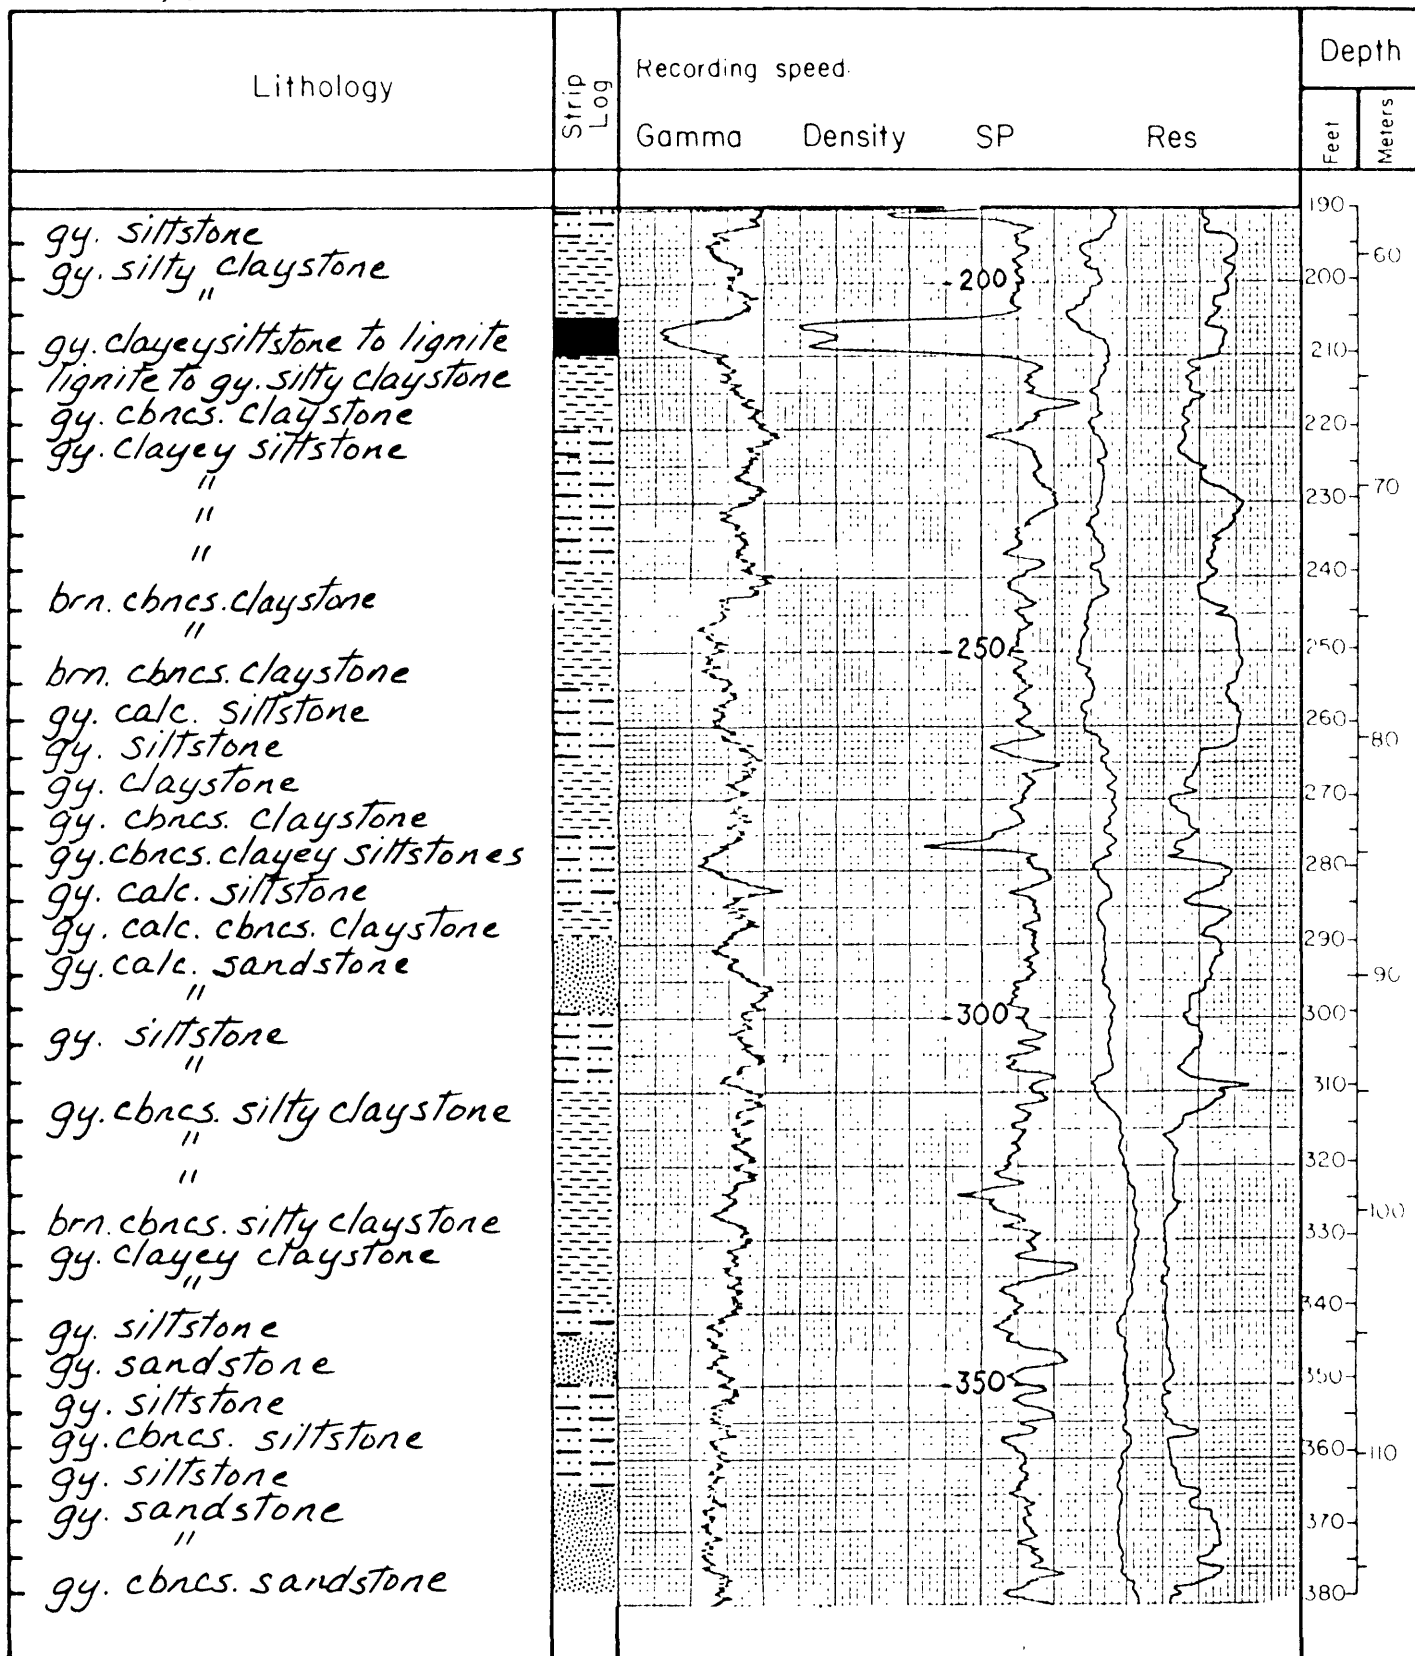 Lithology
Strip Log
Recording speed.
Gamma Density SP Res
Depth
Feet
Meters
gy. siltstone
gy. silty claystone
"
gy. clayey siltstone to lignite
lignite to gy. silty claystone
gy. cbncs. claystone
gy. clayey siltstone
"
"
"
brn. cbncs. claystone
"
brn. cbncs. claystone
gy. calc. siltstone
gy. siltstone
gy. claystone
gy. cbncs. claystone
gy. cbncs. clayey siltstones
gy. calc. siltstone
gy. calc. cbncs. claystone
gy. calc. sandstone
"
gy. siltstone
"
gy. cbncs. silty claystone
"
"
brn. cbncs. silty claystone
gy. clayey claystone
"
gy. siltstone
gy. sandstone
gy. siltstone
gy. cbncs. siltstone
gy. siltstone
gy. sandstone
"
gy. cbncs. sandstone
200
250
300
350
190
200
210
220
230
240
250
260
270
280
290
300
310
320
330
340
350
360
370
380
60
70
80
90
100
110